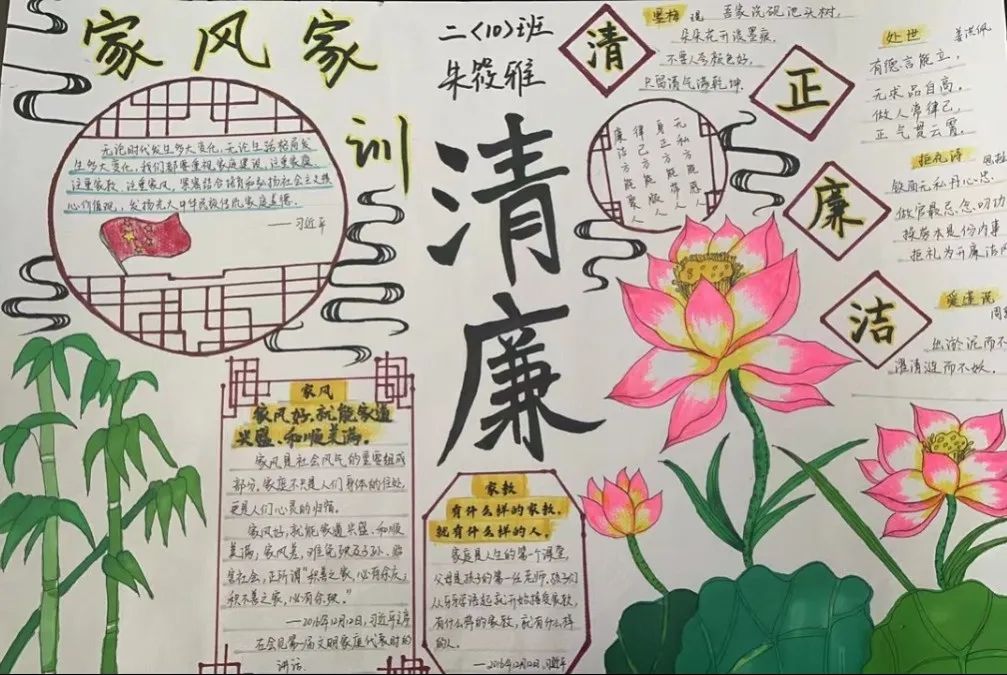 家风家
训
二〈10〉班
朱筱雅
无论时代发生多大变化,无论生活格局发
生多大变化,我们都要重视家庭建设,注重家庭、
注重家教、注重家风,紧密结合培育和弘扬社会主义核
心价值观,发扬光大中华民族传统家庭美德。
——习近平
清廉
家风
家风好,就能家道
兴盛、和顺美满。
家风是社会风气的重要组成
部分。家庭不只是人们身体的住处,
更是人们心灵的归宿。
家风好,就能家道兴盛、和顺
美满;家风差,难免殃及子孙、贻
害社会,正所谓“积善之家,必有余庆;
积不善之家,必有余殃。”
——2016年12月12日,习近平主席
在会见第一届文明家庭代表时的
讲话
家教
有什么样的家教,
就有什么样的人。
家庭是人生的第一个课堂,
父母是孩子的第一任老师。孩子们
从牙牙学语起就开始接受家教,
有什么样的家教,就有什么样
的人。
——2016年12月12日,习近平
清
正
廉
洁
墨梅
吾家洗砚池头树,
朵朵花开淡墨痕。
不要人夸颜色好,
只留清气满乾坤。
无私方能感人
身正方能带人
律己方能服人
廉洁方能聚人
处世 姜洪佩
有德言能立,
无求品自高。
做人常律己,
正气贯云霄。
拒礼诗
铁面无私丹心忠,
做官最忌念叨功。
操劳本是份内事
拒礼为开廉洁
爱莲说
周
出淤泥而不
濯清涟而不妖。